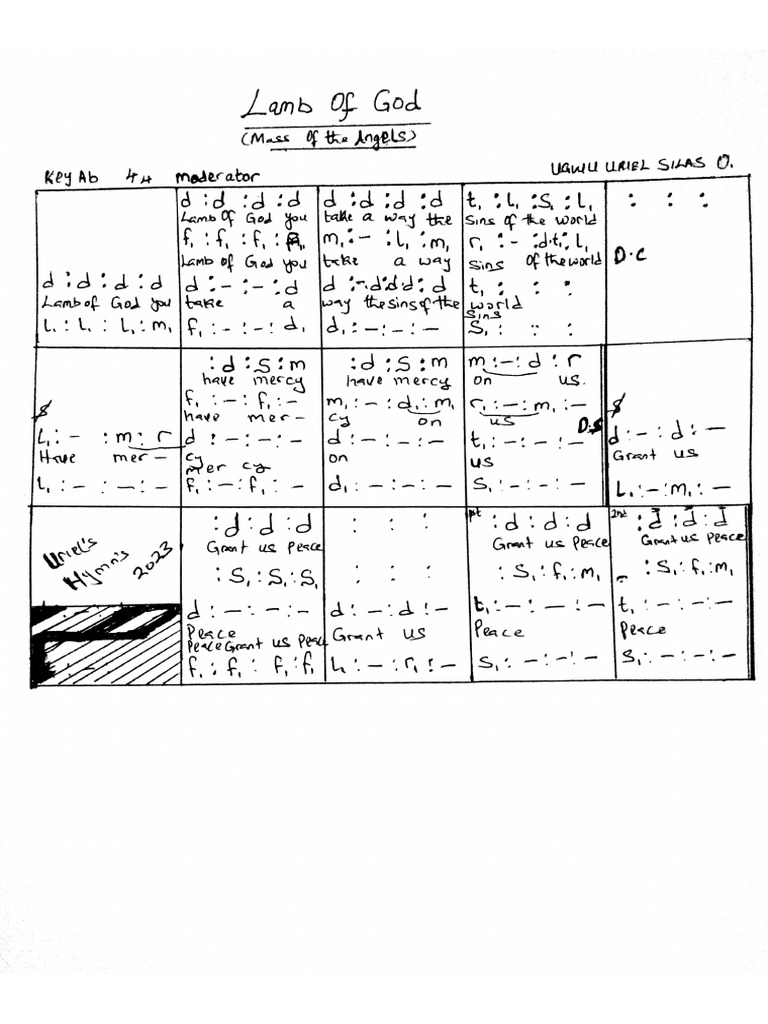 Lamb Of God
(Mass Of the Angels)
Key Ab 44 moderator UGWU URIEL SILAS O.
d :d :d :d d :d :d :d t, :L, :S, :L, : : :
Lamb Of God you take a way the sins of the world
f, : f, : f, : m, :- :L, :m, r, :- :d.t,:L, D.C
Lamb of God you take a way sins of the world
d :d :d :d d :- :- :d d :-.d:d.d:d t, : : :
Lamb of God you take a way the sins of the world
sins
L, : L, : L, : m, f, :- :- :d, d, :- :- :- S, : : :
:d :S :m :d :S :m m :- :d :r
have mercy have mercy on us.
f, :- :f, :- m, :- :d, :m, r, :- :m, :-
have mer- cy on us D.S
L, :- :m :r d :- :- :- d :- :- :- t, :- :- :- d :- :d :-
Have mer- cy on us Grant us
mer cy
L, :- :- :- f, :- :f, :- d, :- :- :- S, :- :- :- L, :- :m, :-
:d :d :d : : : 1st :d :d :d 2nd :d :d :d
Grant us Peace Grant us Peace Grant us Peace
:S, :S, :S, : : : :S, :f, :m, :S, :f, :m,
Uriel's
Hymn's
2023
d :- :- :- d :- :d :- t, :- :- :- t, :- :- :-
Peace Grant us Peace Peace
Peace Grant us Peace
f, : f, : f, : f, L, :- :r, :- S, :- :- :- S, :- :- :-